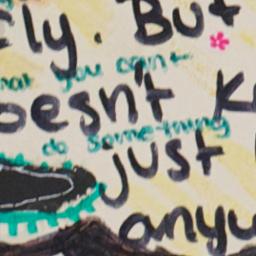 ly. But
you can't
oesn't K
do some-thing
just
anyw